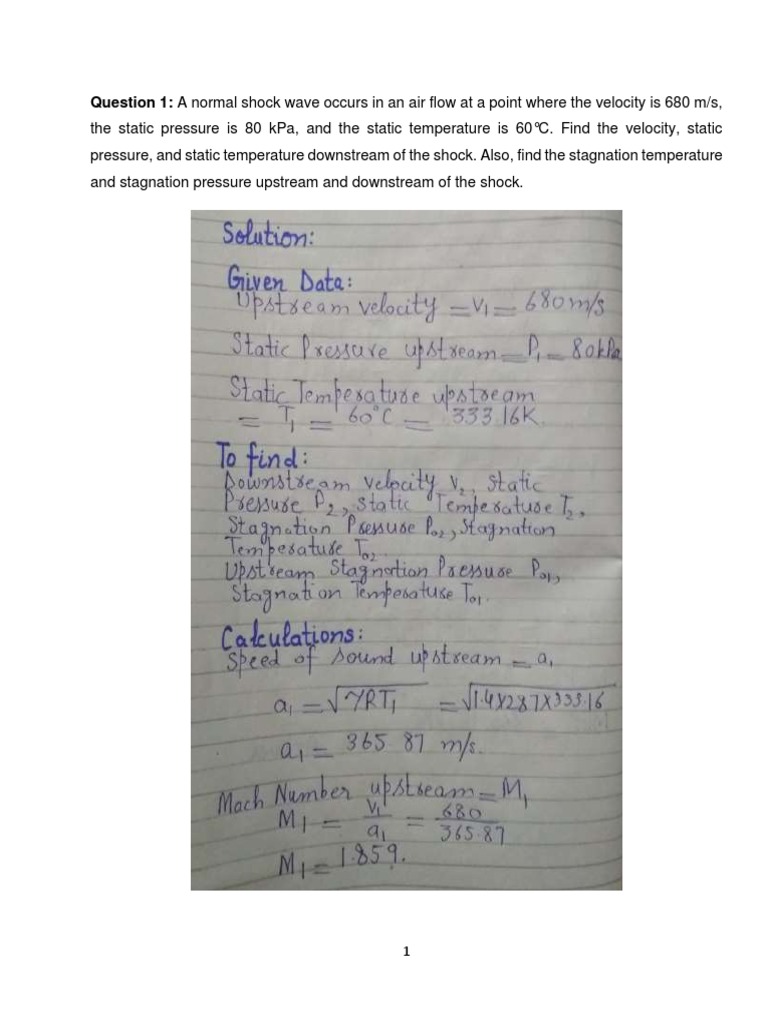 Question 1: A normal shock wave occurs in an air flow at a point where the velocity is 680 m/s,
the static pressure is 80 kPa, and the static temperature is 60°C. Find the velocity, static
pressure, and static temperature downstream of the shock. Also, find the stagnation temperature
and stagnation pressure upstream and downstream of the shock.
Solution:
Given Data:
Upstream velocity = V₁ = 680 m/s
Static Pressure upstream = P₁ = 80kPa
Static Temperature upstream
= T₁ = 60°C = 333.16K.
To find:
Downstream velocity V₂, Static
Pressure P₂, Static Temperature T₂,
Stagnation Pressure P₀₂, Stagnation
Temperature T₀₂.
Upstream Stagnation Pressure P₀₁,
Stagnation Temperature T₀₁.
Calculations:
Speed of sound upstream = a₁
a₁ = √γRT₁ = √1.4×287×333.16
a₁ = 365.87 m/s.
Mach Number upstream = M₁
M₁ = V₁/a₁ = 680/365.87
M₁ = 1.859.
1